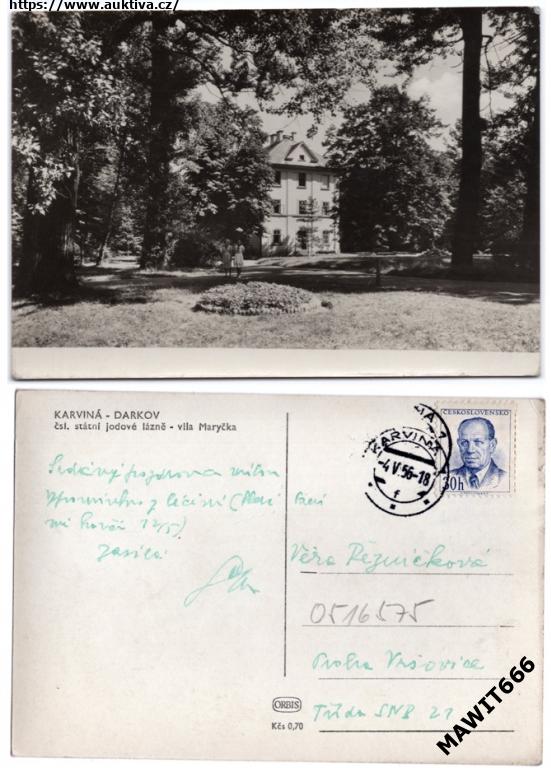 https://www.auktiva.cz/
KARVINÁ - DARKOV
čsl. státní jodové lázně - vila Maryčka
ČESKOSLOVENSKO
30h
KARVINÁ 1
-4.V.56-18
f
Srdečný pozdrav a milou
vzpomínku z léčení
končí 12/5)
zasílá
Paní
Věra Řezníčková
0516575
Praha Vršovice
Třída SNB 21
ORBIS
Kčs 0,70
MAWIT666